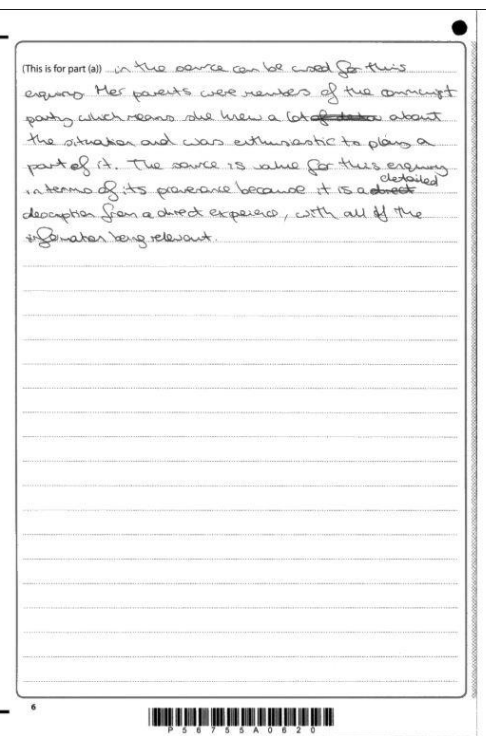 (This is for part (a)) in the source can be used for this
enquiry. Her parents were members of the communist
party which means she knew a lot about
the situation and was enthusiastic to play a
part of it. The source is value for this enquiry
in terms of its provenance because it is a detailed
description from a direct experience, with all of the
information being relevant.
6
P56755A0620